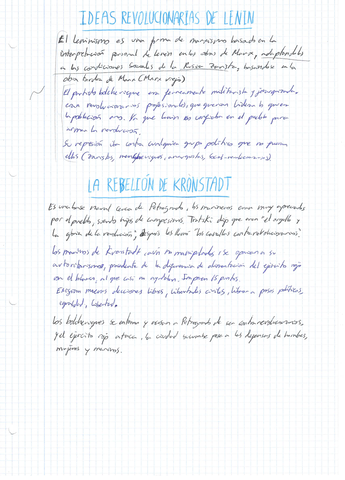 IDEAS REVOLUCIONARIAS DE LENIN
El leninismo es una forma de marxismo basado en la
interpretación personal de Lenin en las obras de Marx, adaptandolas
a las condiciones sociales de la Rusia Zarista, basandose en la
obra tardia de Marx (Marx viejo)
El partido bolchevique era ferreamente militarista y jerarquizado
eran revolucionarios profesionales, que querian liderar la guerra
la población rusa. Ya que Lenin no confiaba en el pueblo para
armar la revolución.
Su represión iba contra cualquier grupo político que no fueran
ellos (Zaristas, mencheviques, anarquistas, social-revolucionarios)
LA REBELIÓN DE KRÖNSTADT
Es una base naval cerca de Petrogrado, los marineros eran muy
por el pueblo, siendo hijos de campesinos. Trotski dijo que eran "el orgullo y
la gloria de la revolución", despues los llamó "los cosacos contrarevolucionarios".
Los marinos de Kronstadt se oponian a su
autoritarismo, de alimentación del ejército rojo
con el blanco, al que casi no Imponen 15 puntos.
Exigieron nuevas elecciones libres, libertades civiles, liberar a presos políticos,
igualdad, libertad.
Los bolcheviques se a Petrogrado de ser contrarevolucionarios,
y el ejército rojo ataca, la ciudad sucumbe pese a las defensas de hombres,
mujeres y marinos.